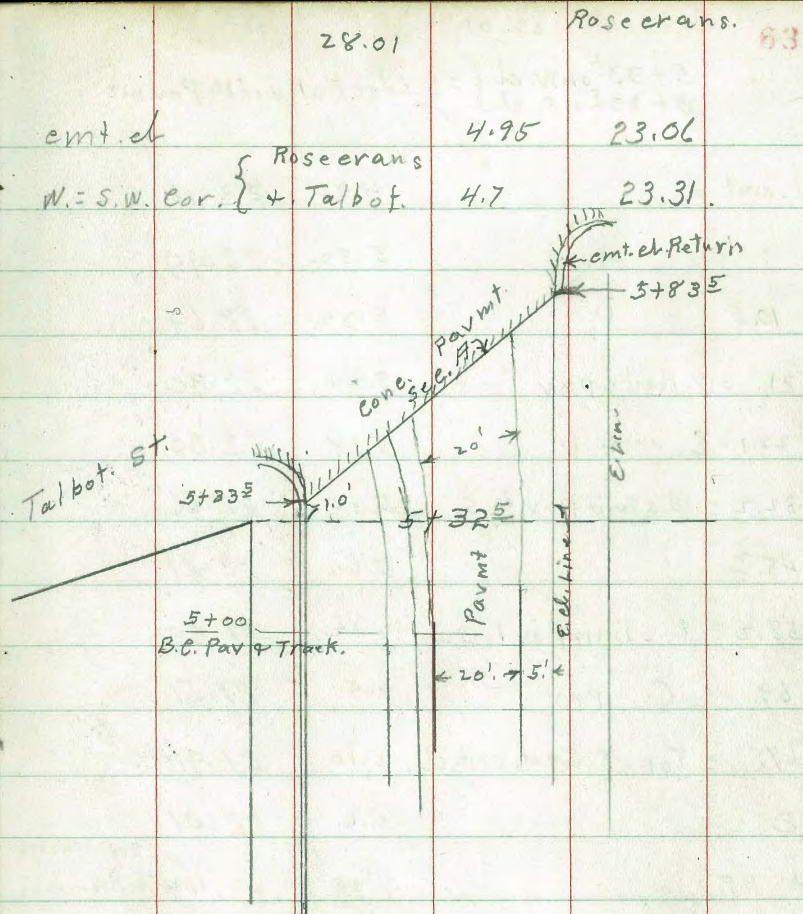 Roseerans. 63
28.01
emt. el 4.95 23.06
W. = S.W. Cor. { Roseerans + Talbot. 4.7 23.31.
emt. el. Return
5+83 5
Conc. Pavmt.
Sec.
20'
E. Line
Talbot. St.
5+33 5
1.0'
5+32 5
Pavmt
E. el. Line
5+00
B.C. Pav & Track.
20'. 5'